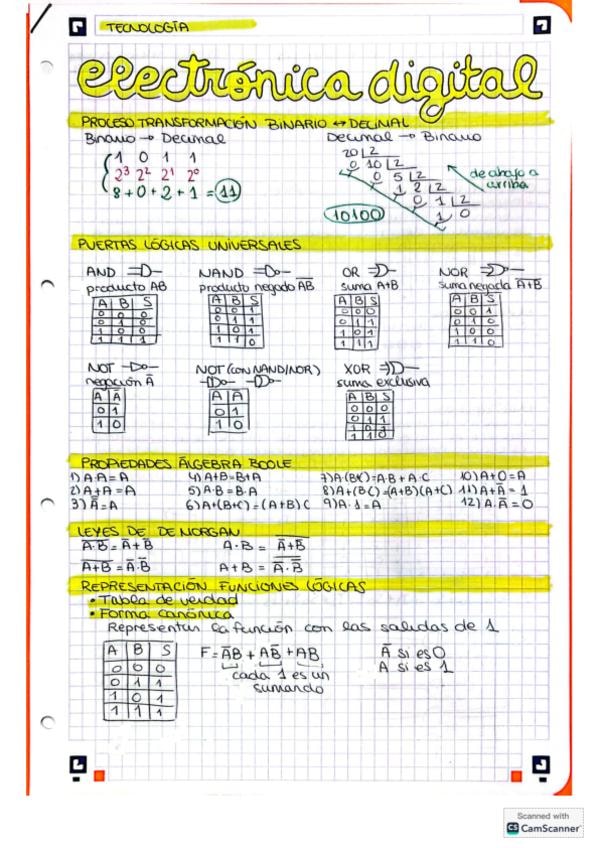 TECNOLOGÍA
electrónica digital
PROCESO TRANSFORMACIÓN BINARIO ↔ DECIMAL
Binario → Decimal
1 0 1 1
2³ 2² 2¹ 2⁰
8+0+2+1 = 11
Decimal → Binario
20 2
0 10 2
0 5 2
1 2 2
0 1 2
1 0
de abajo a
arriba
10100
PUERTAS LÓGICAS UNIVERSALES
AND
producto AB
A B S
0 0 0
0 1 0
1 0 0
1 1 1
NAND
producto negado A̅B̅
A B S
0 0 1
0 1 1
1 0 1
1 1 0
OR
suma A+B
A B S
0 0 0
0 1 1
1 0 1
1 1 1
NOR
suma negada A̅+̅B̅
A B S
0 0 1
0 1 0
1 0 0
1 1 0
NOT
negación A̅
A A̅
0 1
1 0
NOT (con NAND/NOR)
A A
0 1
1 0
XOR
suma exclusiva
A B S
0 0 0
0 1 1
1 0 1
1 1 0
PROPIEDADES ÁLGEBRA BOOLE
1) A·A = A
2) A+A = A
3) A̿ = A
4) A+B=B+A
5) A·B = B·A
6) A+(B+C) = (A+B) C
7) A·(B+C) = A·B + A·C
8) A+(B·C) = (A+B)(A+C)
9) A·1 = A
10) A+0 = A
11) A+A̅ = 1
12) A·A̅ = 0
LEYES DE DE MORGAN
A̅·̅B̅ = A̅+B̅
A·B = A̿+̅B̿
A̅+̅B̅ = A̅·B̅
A+B = A̿·̅B̿
REPRESENTACIÓN FUNCIONES LÓGICAS
• Tabla de verdad
• Forma canónica
Representar la función con las salidas de 1
A B S
0 0 0
0 1 1
1 0 1
1 1 1
F = A̅B + AB̅ + AB
cada 1 es un
sumando
A̅ si es 0
A si es 1
Scanned with
CS CamScanner